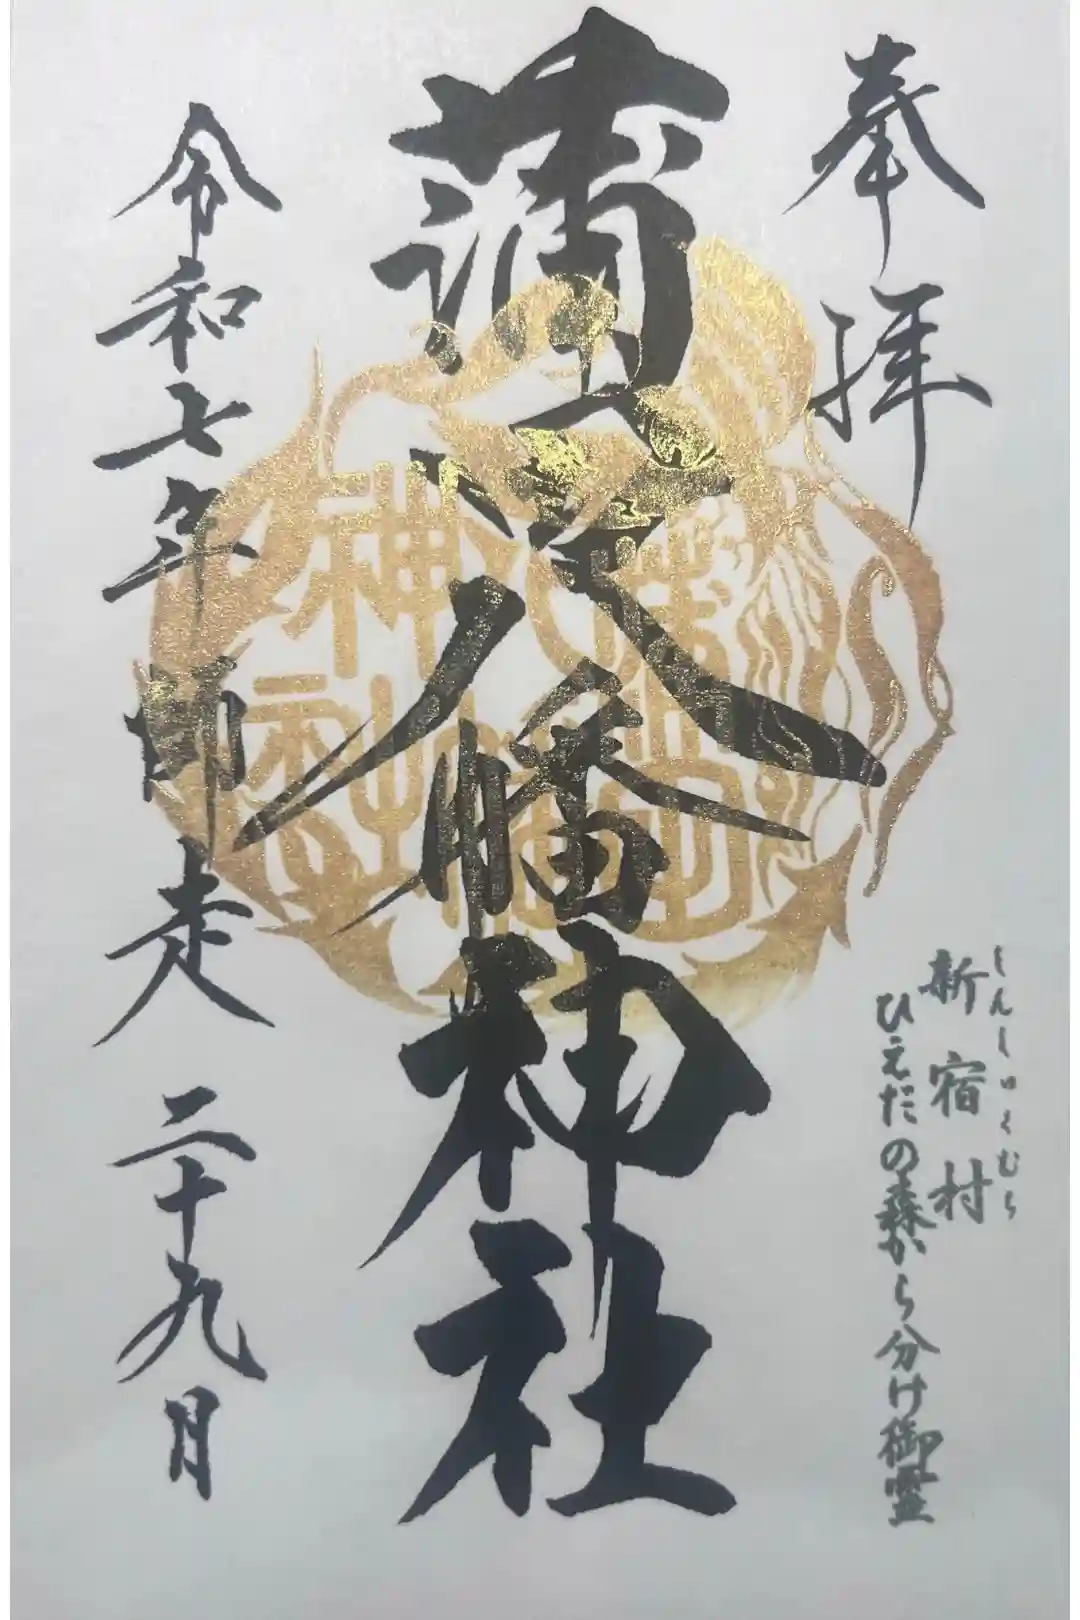 奉拝
しんしゅくむら
新宿村
ひえだの森から分け御霊
蒲田八幡神社
蒲田八幡神社
令和七年師走二十九日